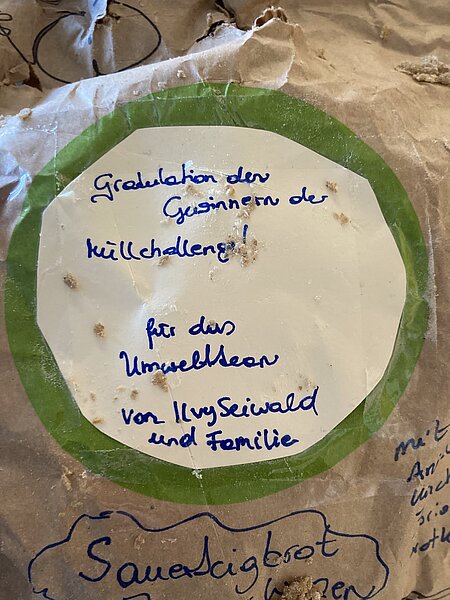 Gratulation den
Gewinnern der
Müllchallenge!
für das
Umweltteam
von Ilvy Seiwald
und Familie
mit
Sauerteigbrot